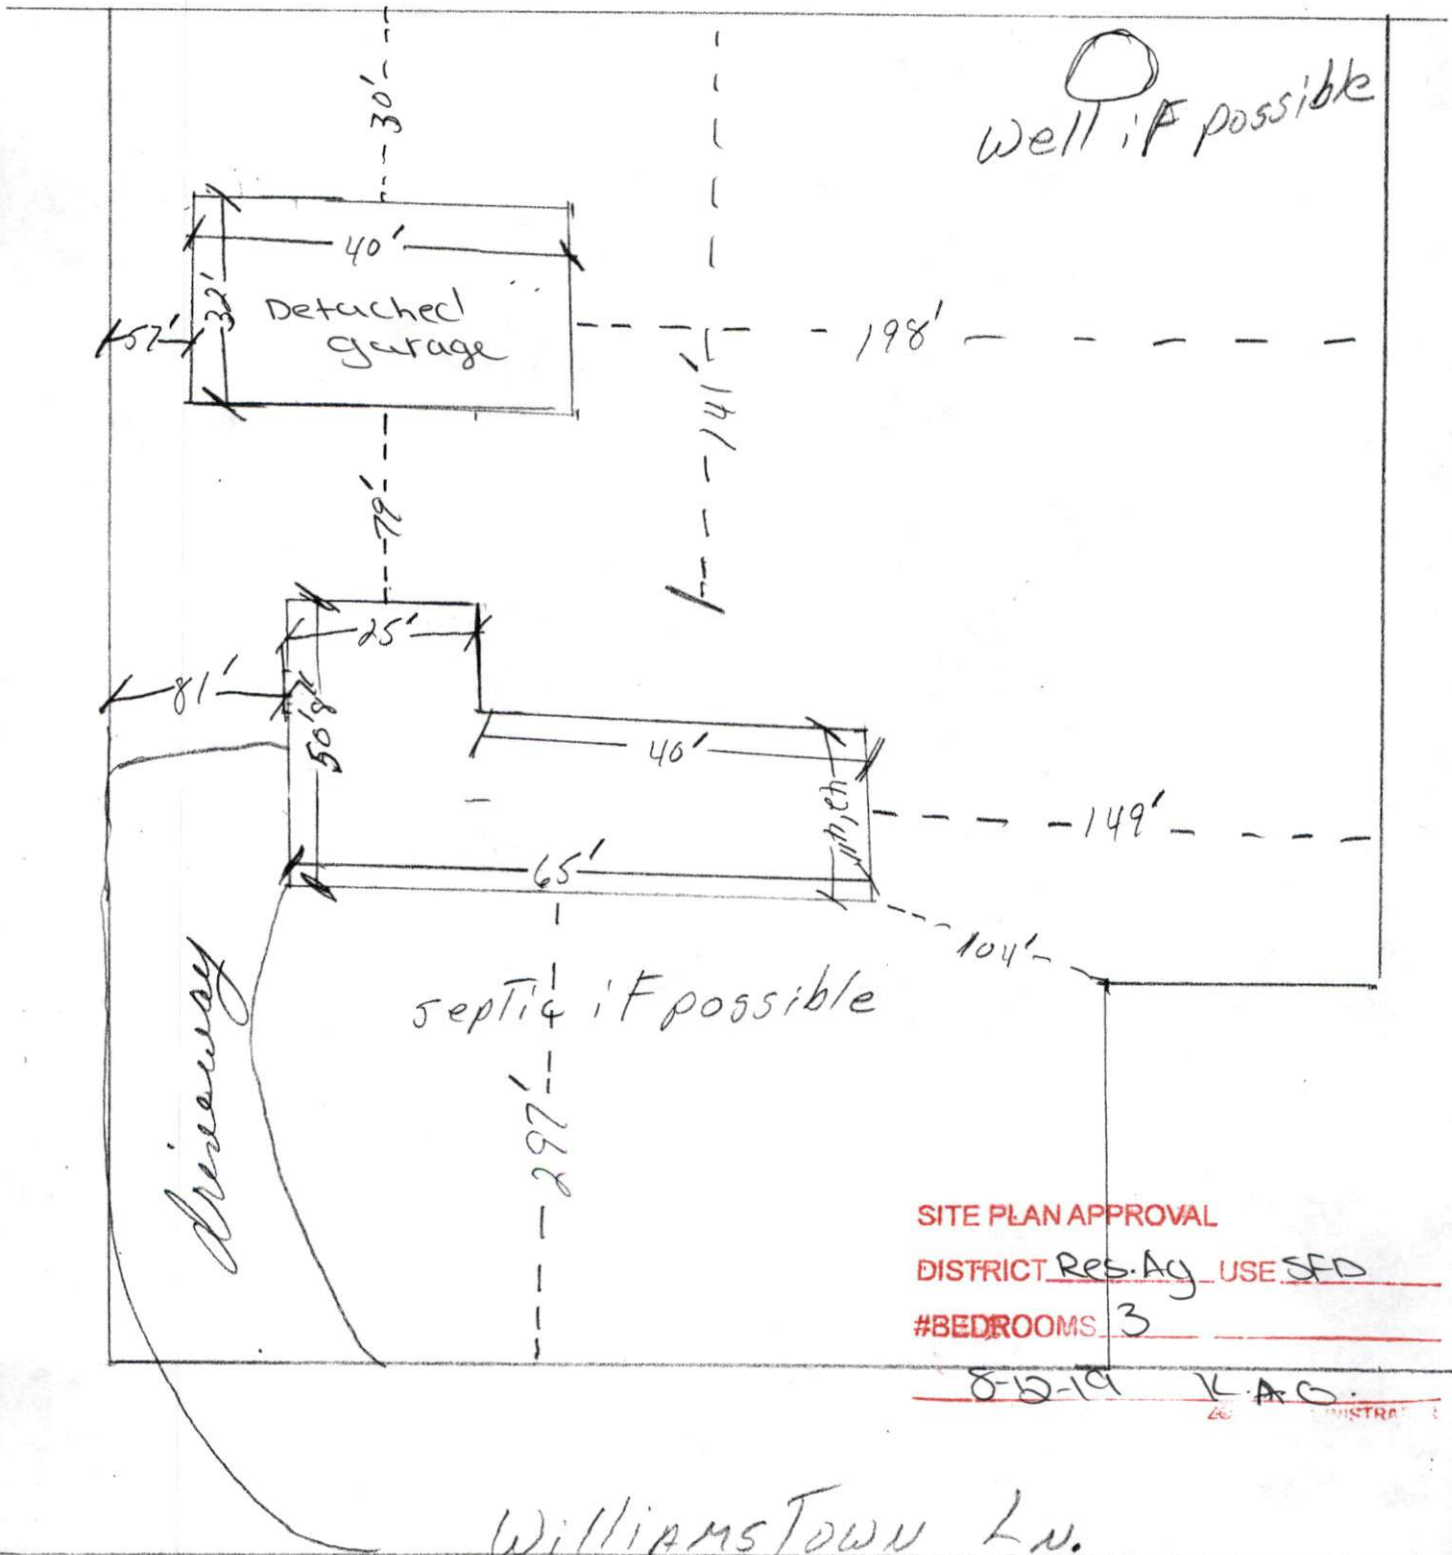 30'
well if possible
40'
32'
Detached
garage
57'
198'
141'
79'
25'
81'
50'8"
40'
149'
65'
104'
septic if possible
driveway
297'
SITE PLAN APPROVAL
DISTRICT Res. Ag USE SFD
#BEDROOMS 3
8-12-19 K.A.G.
Williamstown Ln.